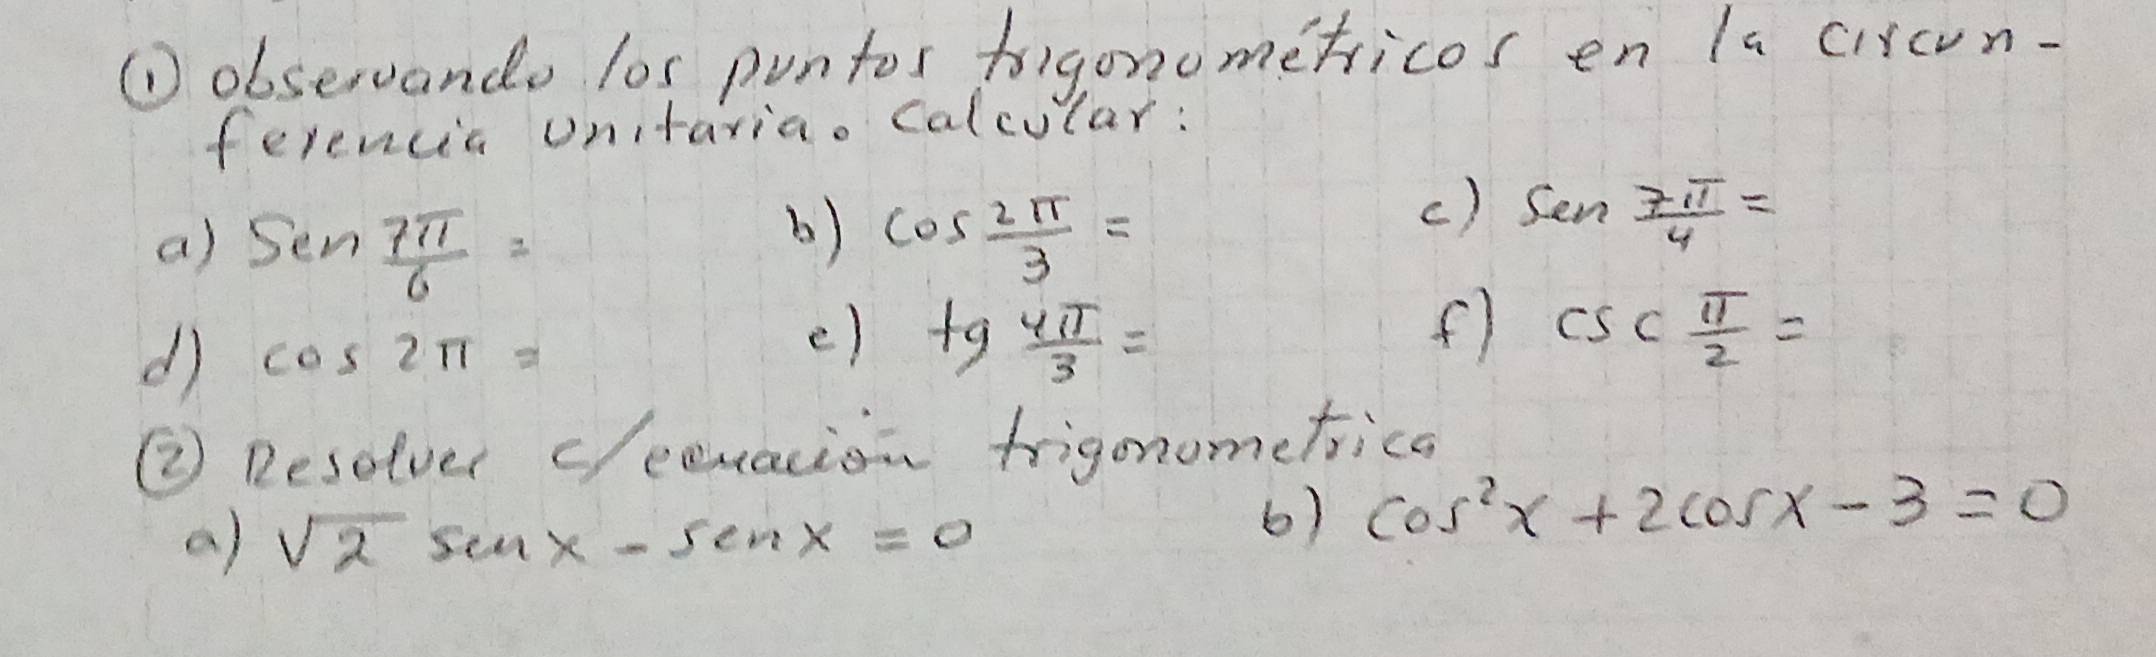 ① Observando los puntos trigonométricos en la circun-
ferencia unitaria. Calcular:
a) Sen 7π/6 =   b) cos 2π/3 =   c) Sen 7π/4 =
d) cos 2π =   e) tg 4π/3 =   f) csc π/2 =
② Resolver c/ecuación trigonometrica
a) √2 senx - senx = 0   b) cos²x + 2cosx - 3 = 0